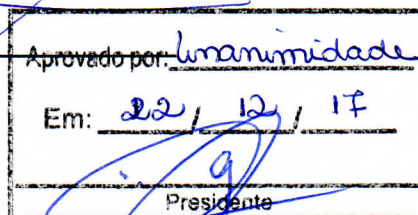 Aprovado por: Unanimidade
Em: 22 / 12 / 17
Presidente